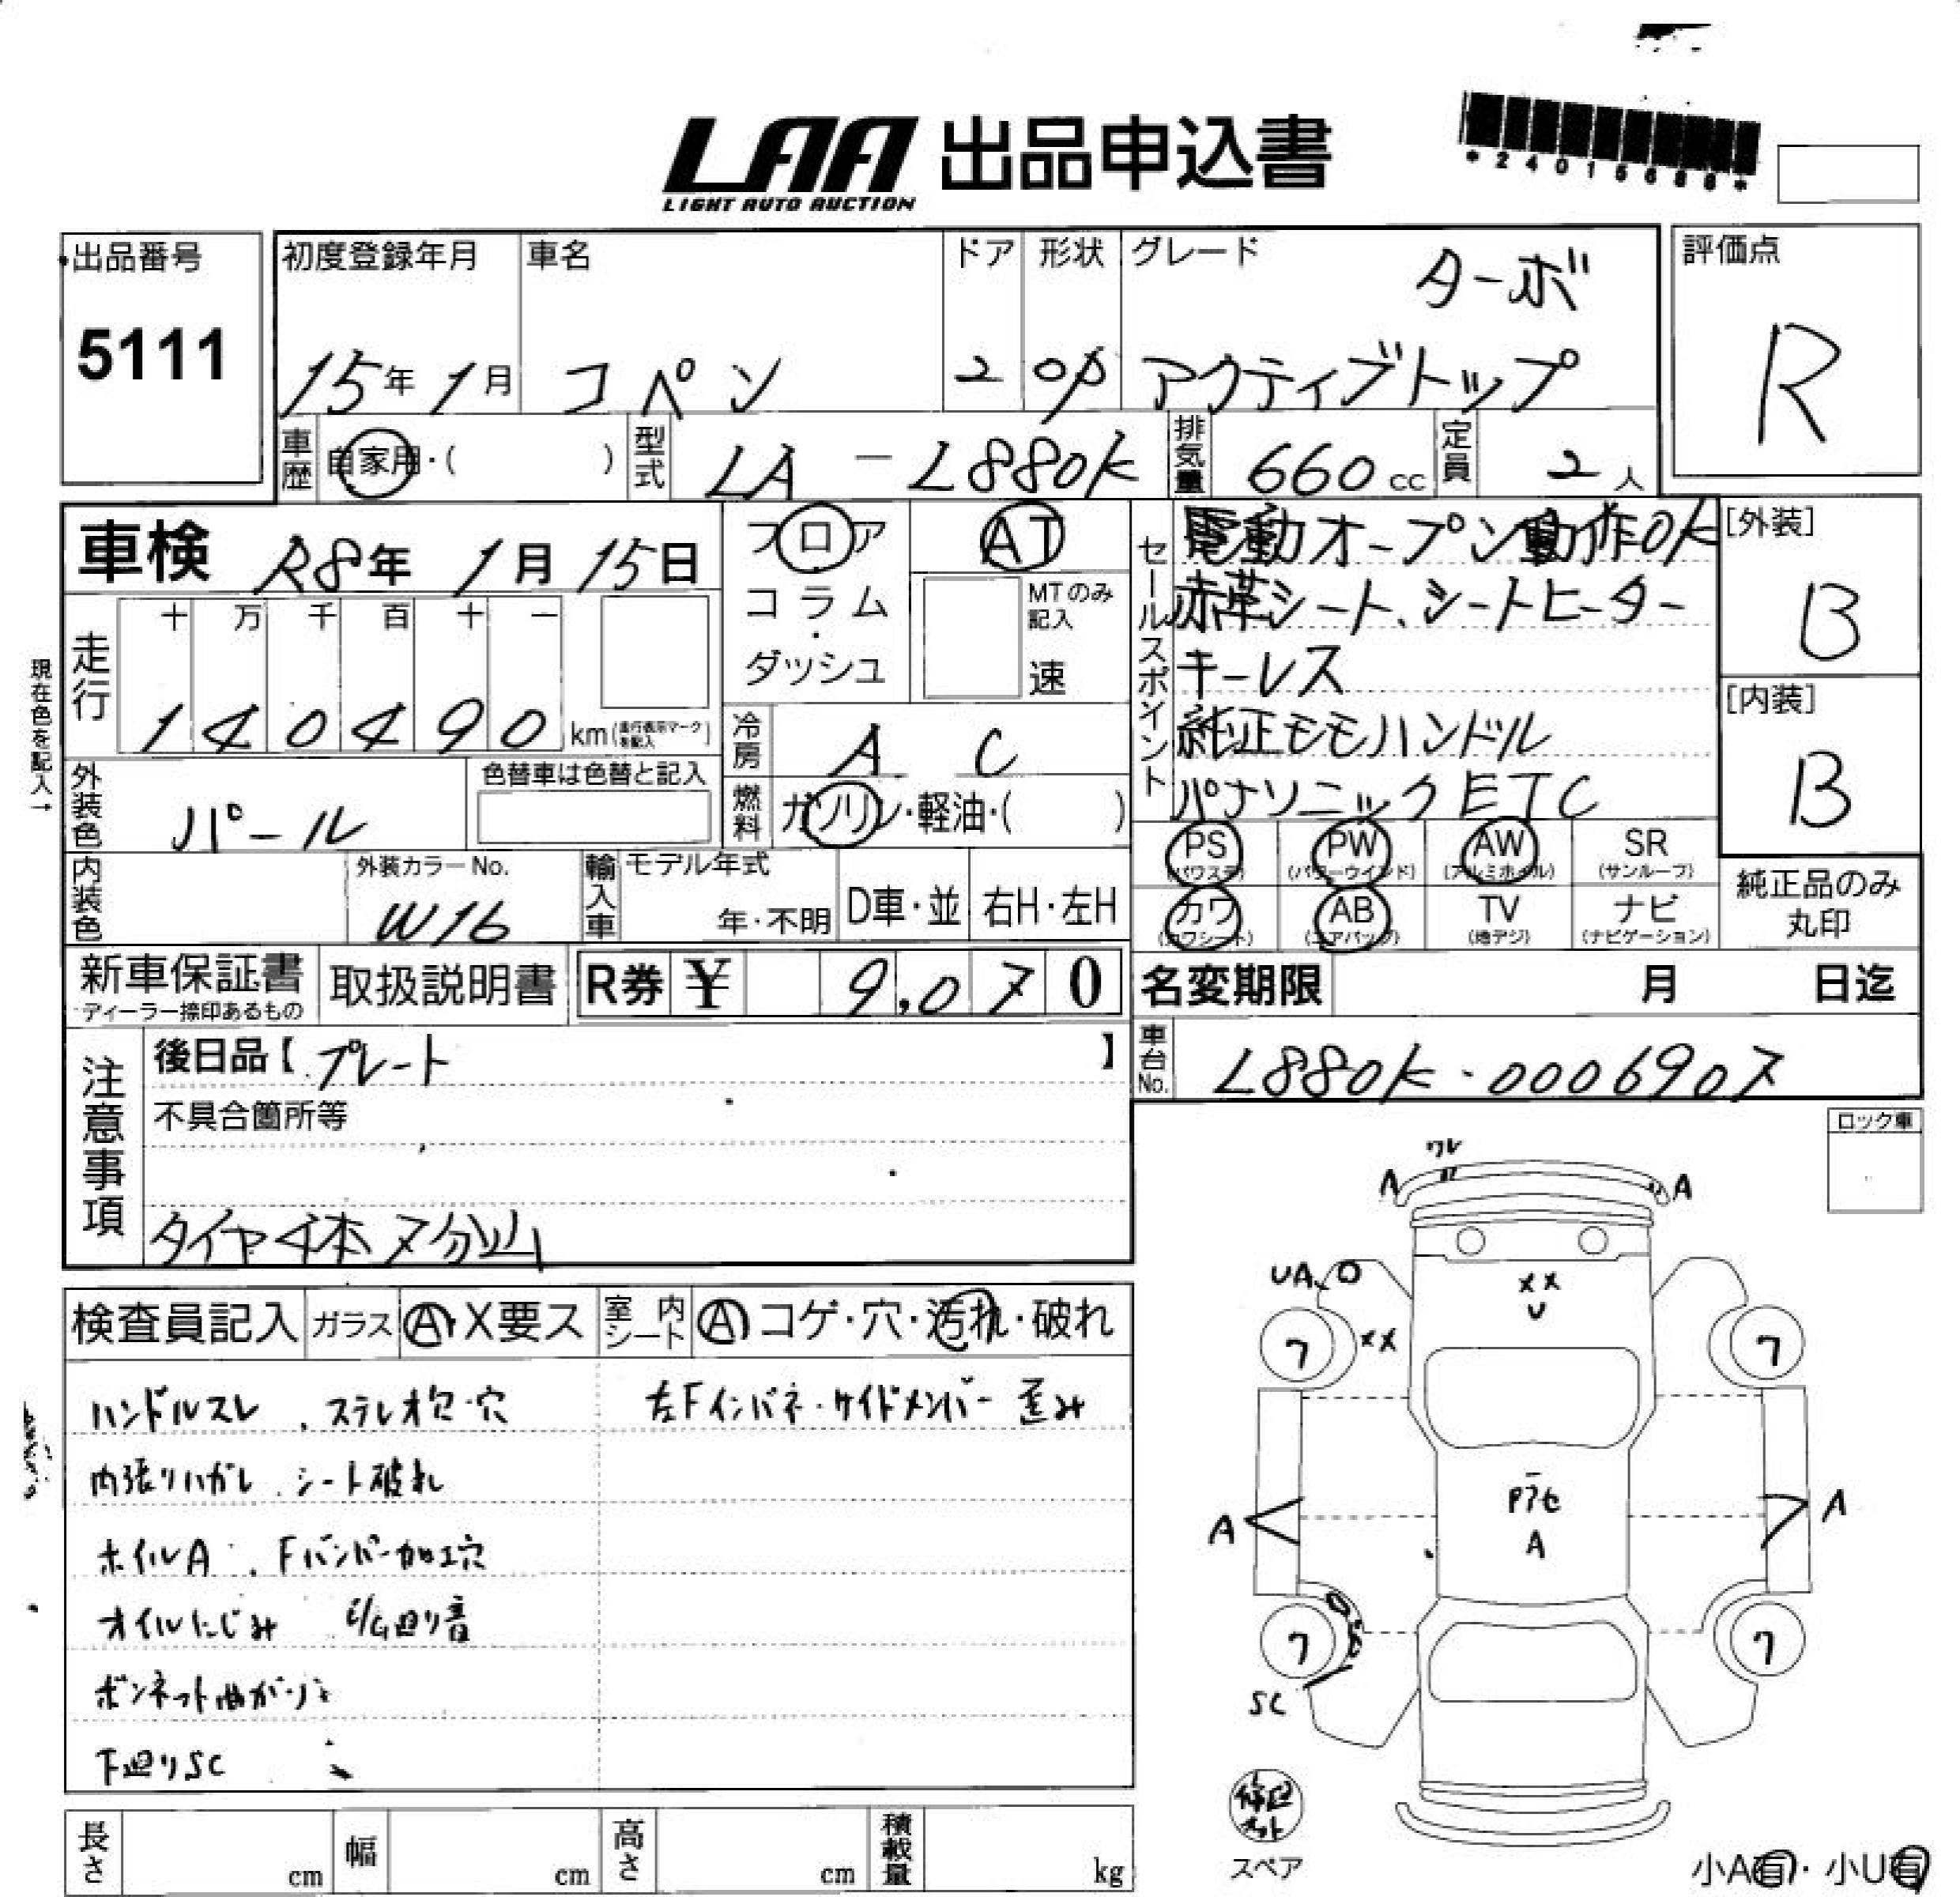 LAA 出品申込書
LIGHT AUTO AUCTION
出品番号
5111
初度登録年月
15年 1月
車名
コペン
ドア
2
形状
OP
グレード
ターボ
アクティブトップ
評価点
R
車歴
自家用・( )
型式
LA - L880K
排気量
660 cc
定員
2 人
車検
R8年 1月 15日
フロア
コラム
・
ダッシュ
AT
MTのみ
記入
速
セールスポイント
電動オープン動作OK
赤革シート、シートヒーター
キーレス
純正モモハンドル
パナソニックETC
[外装]
B
[内装]
B
現在色を記入→
走行
十 万 千 百 十 一
1 4 0 4 9 0 km(走行表示マークを記入)
冷房
A C
外装色
パール
色替車は色替と記入
燃料
ガソリン・軽油・( )
内装色
外装カラーNo.
W16
輸入車
モデル年式
年・不明
D車・並
右H・左H
PS
(パワステ)
PW
(パワーウインド)
AW
(アルミホイル)
SR
(サンルーフ)
カワ
(カワシート)
AB
(エアバッグ)
TV
(地デジ)
ナビ
(ナビゲーション)
純正品のみ
丸印
新車保証書
ディーラー捺印あるもの
取扱説明書
R券 ¥ 9,070
名変期限 月 日迄
車台No.
L880K-0006907
注意事項
後日品【プレート 】
不具合箇所等
タイヤ4本7分山
ロック車
検査員記入
ガラス
A・X要ス
室内シート
A コゲ・穴・汚れ・破れ
ハンドルスレ 、ステレオ欠・穴
左Fインパネ・サイドメンバー歪み
内張りハガレ 、シート破れ
ホイルA 、Fバンパー加工穴
オイルにじみ E/G廻り音
ボンネット曲がり
下廻りSC
ワレ
A
A
UA
XX
U
XX
7
7
A
A
A
7
7
SC
修キット
スペア
小A有・小U有
長さ cm
幅 cm
高さ cm
積載量 kg